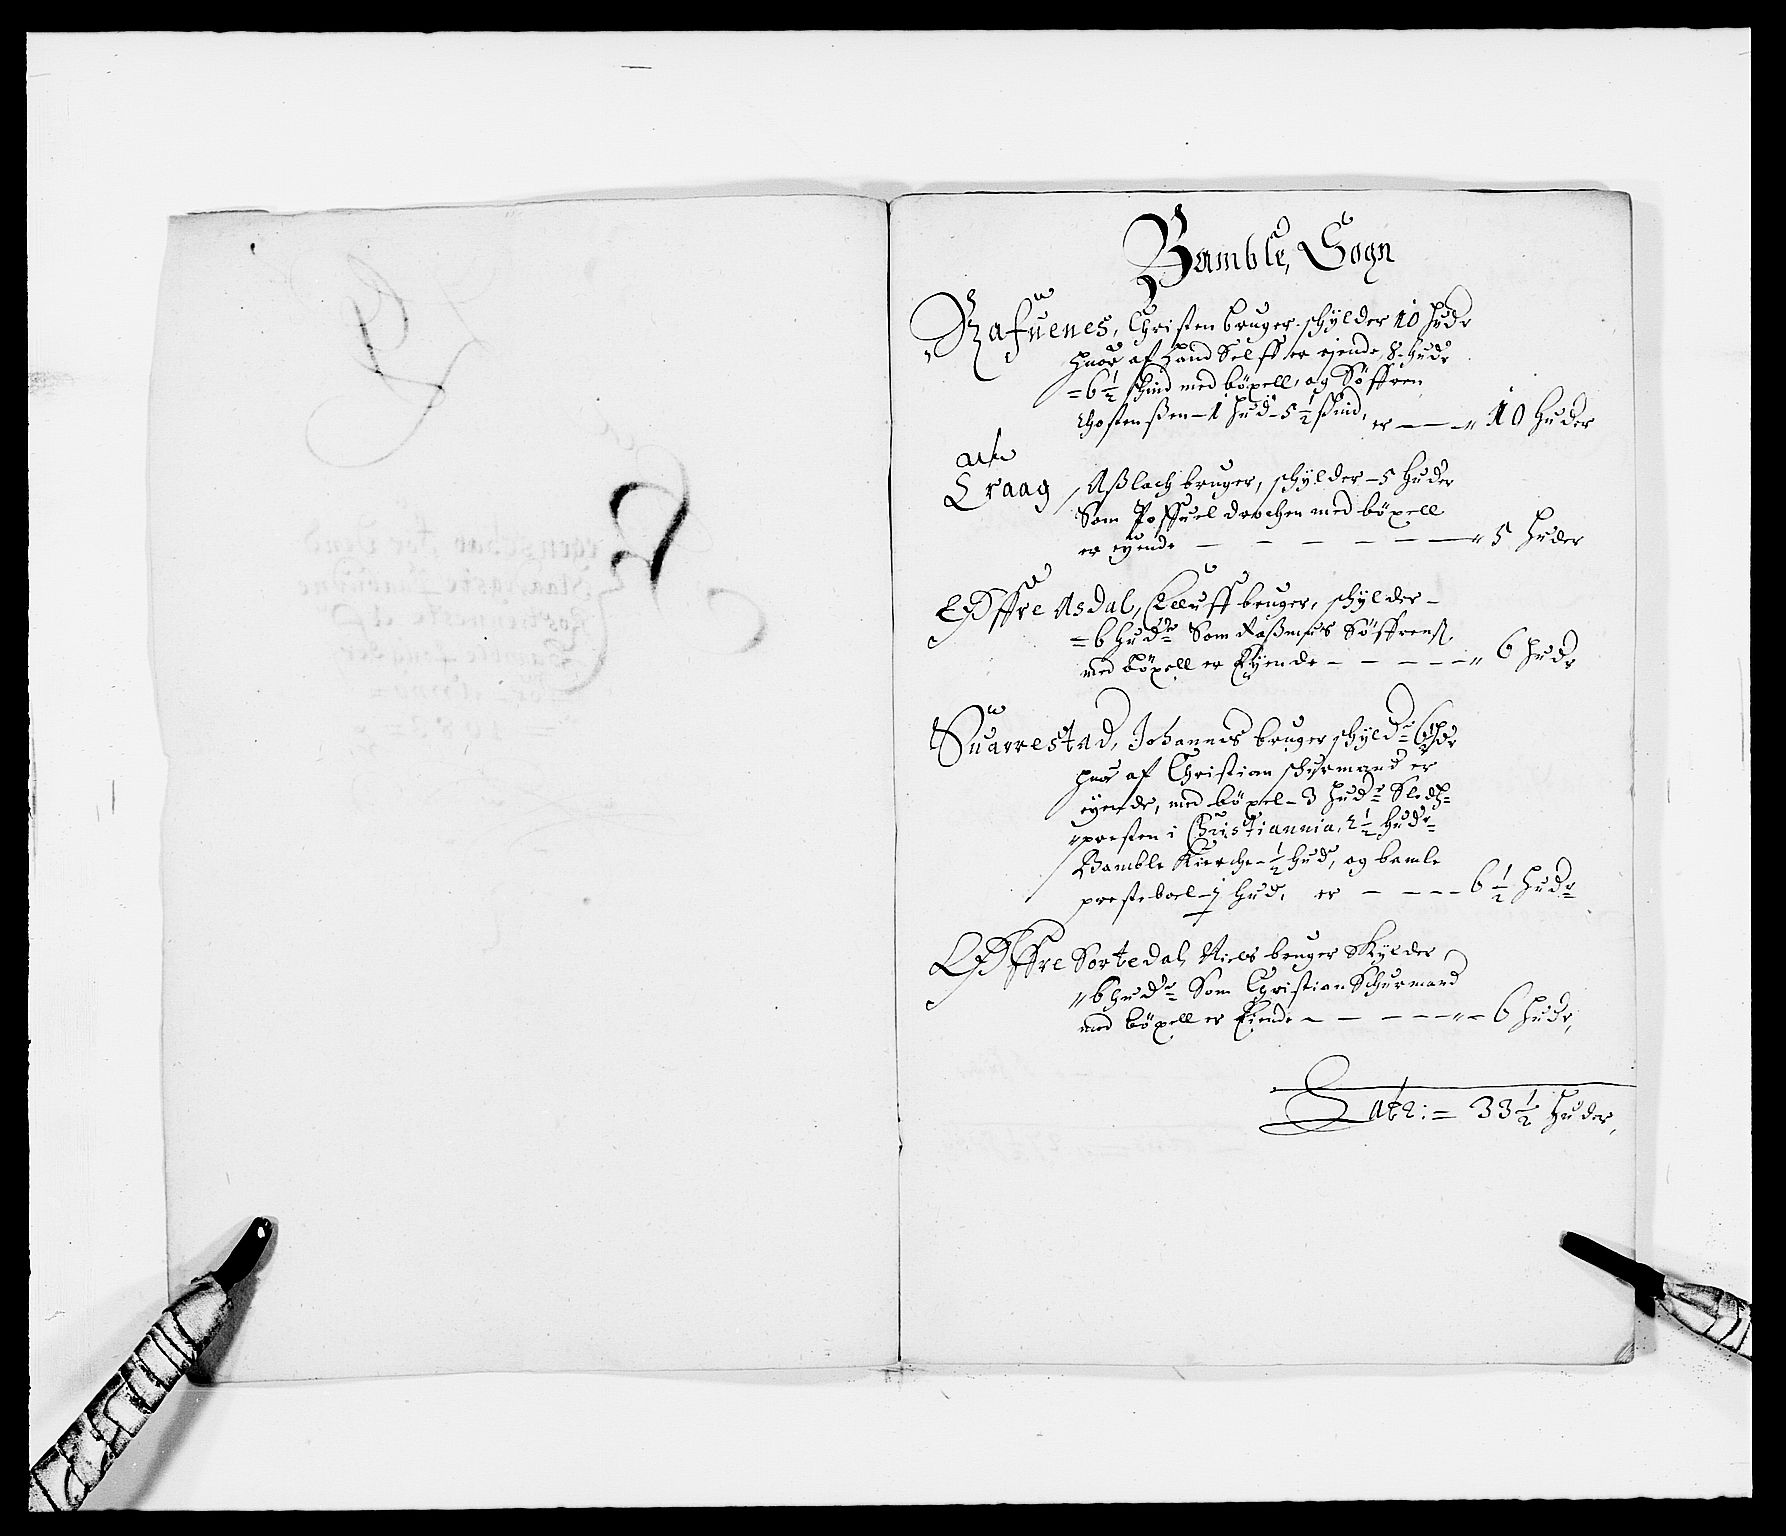 Bamble, Sogn
Rafuenes, Christen bruger, schylder 10 hudr
huor af hand Self er ejende, 8 hudr
= 6 1/2 skind med böxell, og Söffren
Chostenßen - 1 hud - 5 1/2 skind, er — — 10 huder
Kraag, Aßlach bruger, schylder - 5 huder
Som Poffuel dochen med böxell
er eyende — — — — — 5 huder
Øffre Asdal, Elluff bruger, schylder -
= 6 hudr Som Raßmus Söffrenß.
med böxell er Eyende - - - - - 6 hudr
Suarrestad, Johannes bruger schyldr 6 1/2 hudr
huor af Christian schurmand er
eyende, med böxel - 3 hudr Slodz-
presten i Christiannia, 2 1/2 hudr
Bamble Kierche - 1/2 hud, og bamle
presteboel - 1/2 hud. er - - - - 6 1/2 hudr
Øffre Sortedal, Niels bruger Skylder,
6 hudr Som Christian Schurmand
med böxell er Eiende - - - - - 6 hudr,
Latr: = 33 1/2 huder,